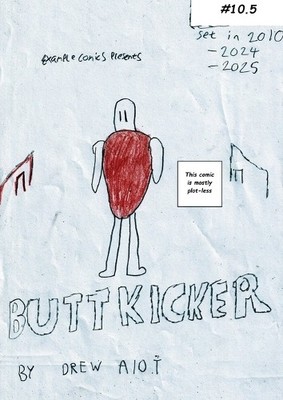 #10.5
set in 2010
-2024
-2025
Example comics Presents
This comic
is mostly
plot-less
BUTTKICKER
BY DREW AIOT